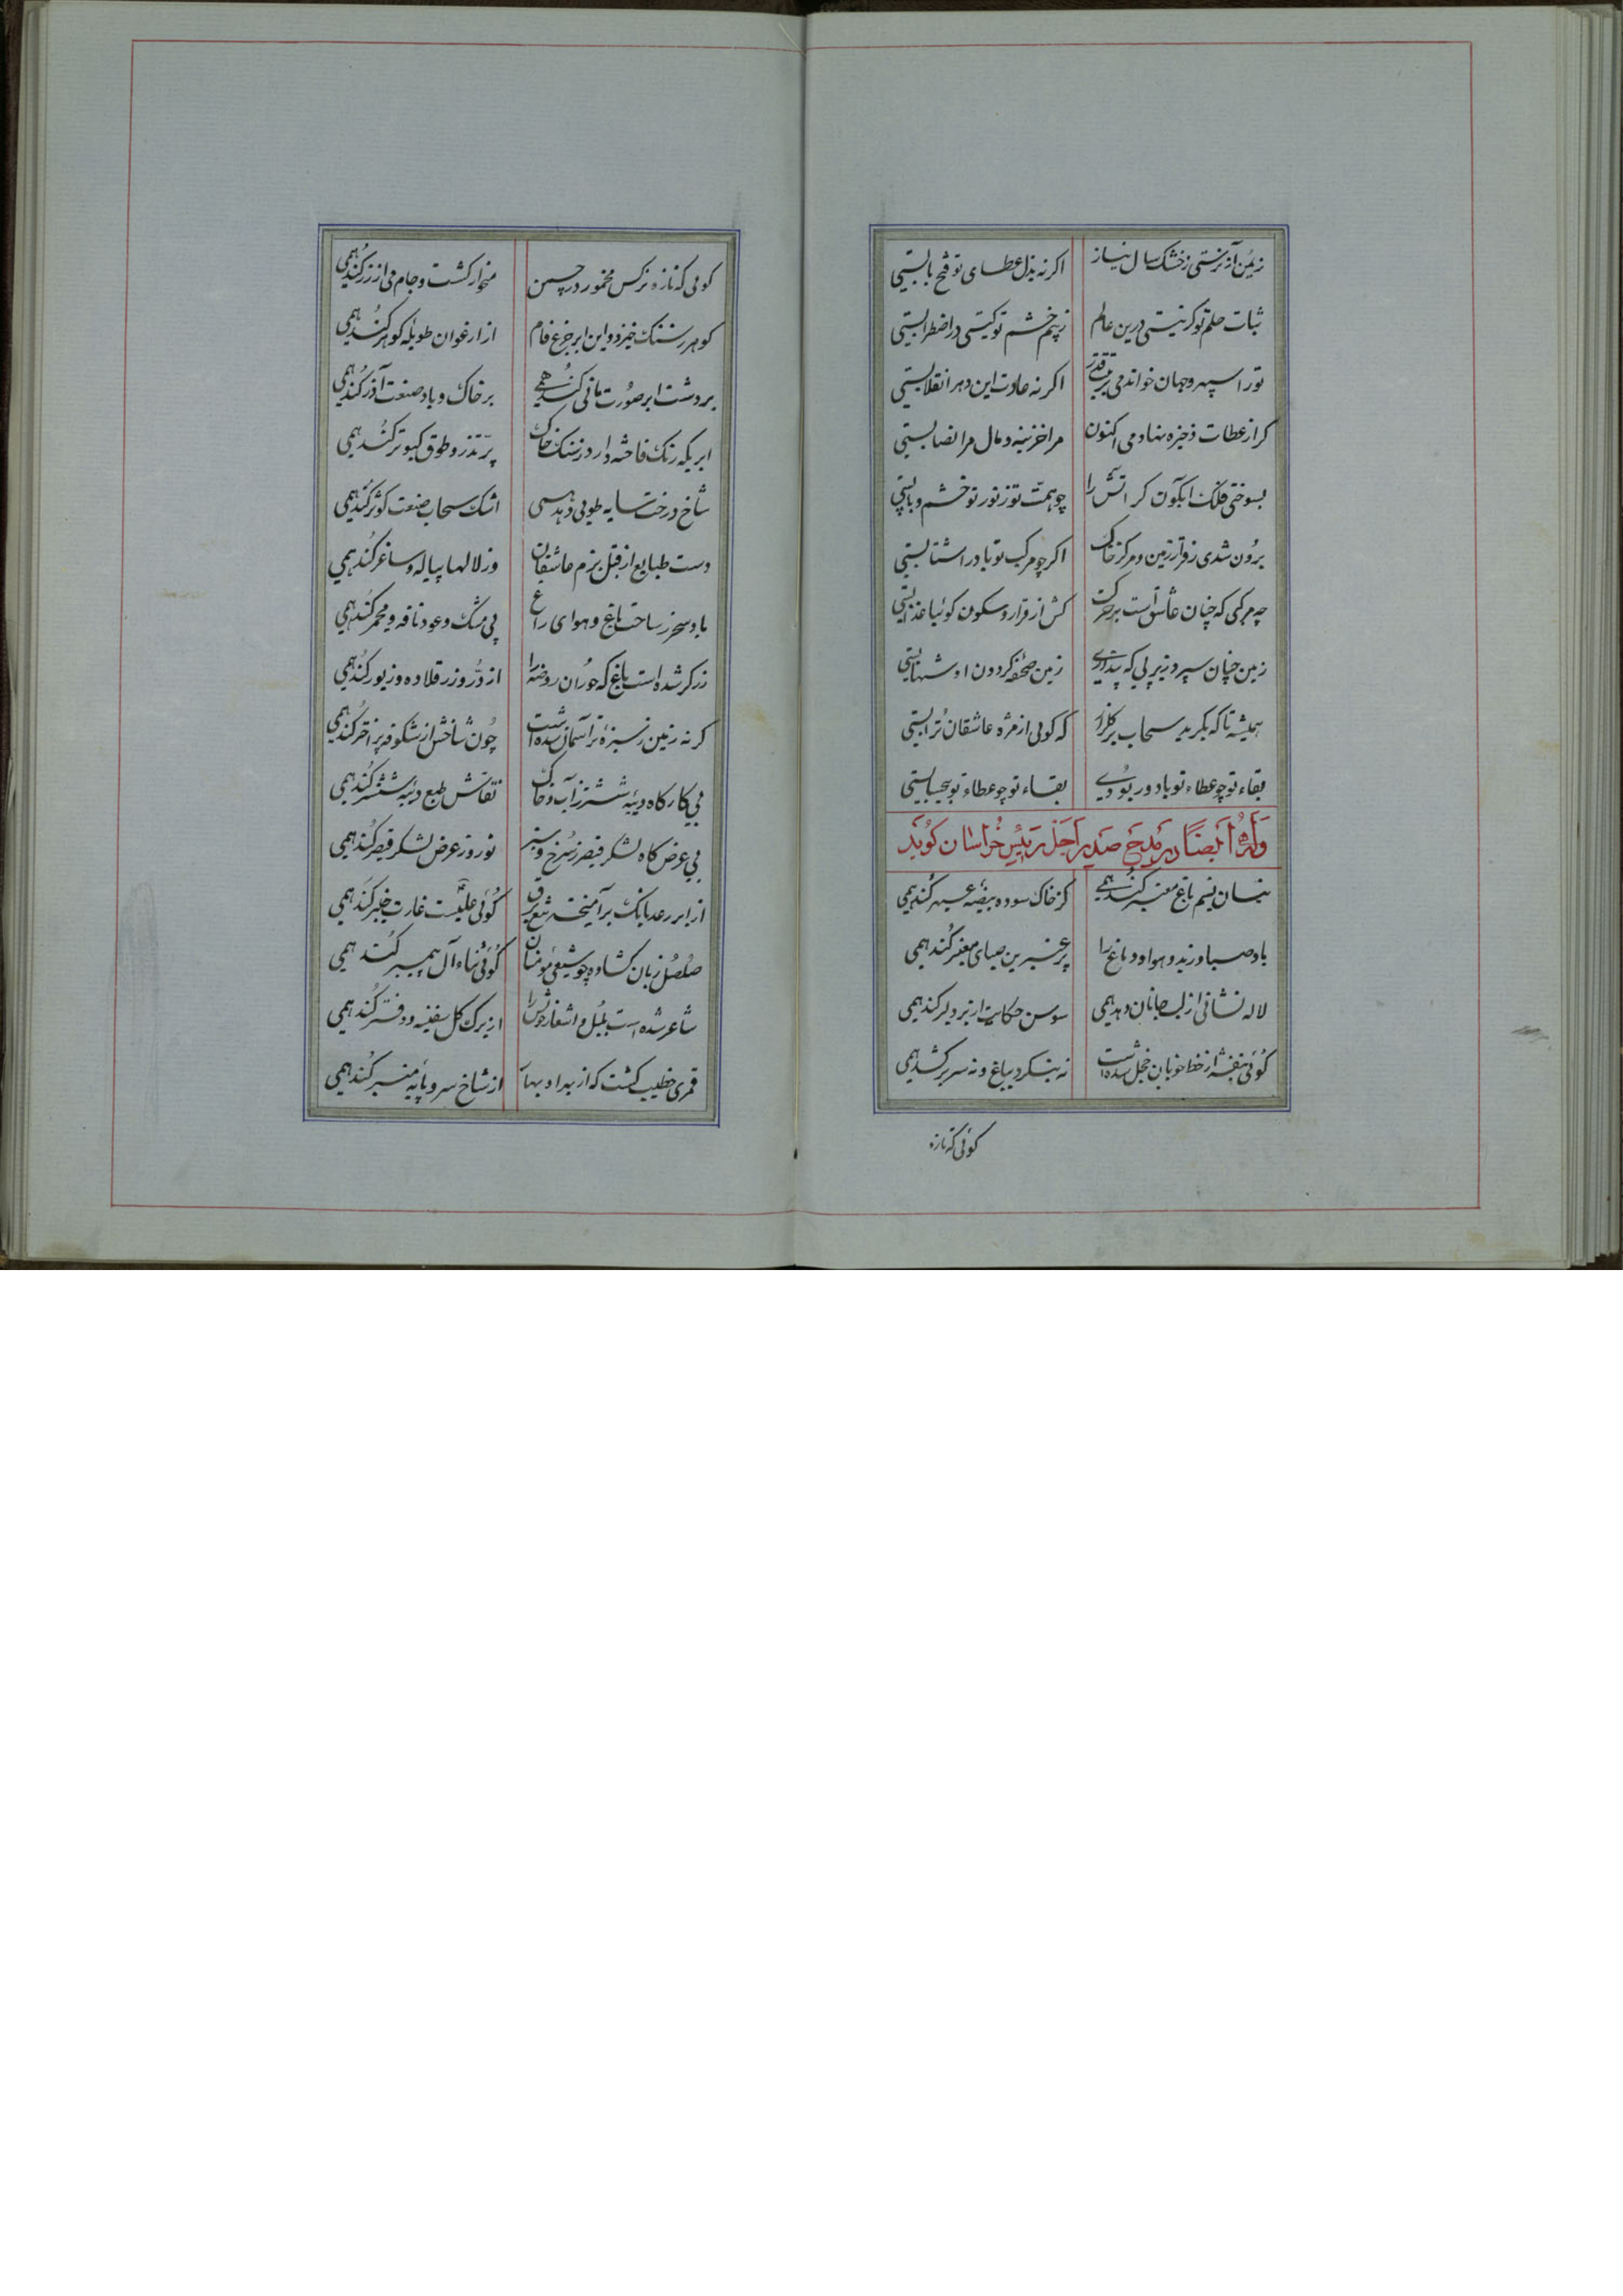 زمین آز نرستی ز خشک سال نیاز اکر نه بذل عطای تو فتح بابستی
ثبات حلم تو کر نیستی درین عالم ز بیم خشم تو کیتی در اضطرابستی
تو را سپهر و جهان خواندمی اکر نه عادت این دهر انقلابستی
کر از عطات ذخیره نهادمی اکنون مرا خزینه و مال مرا نصابستی
بسوختی فلک ابکون کر اتش را چو همت تو ز نور تو خشم
برون شدی ز قرار زمین و مرکز خاک اکر چو مرکب تو باد را شتابستی
چه مرکبی که چنان عاشق است بر حرکت کش از قرار و سکون کوئیا عذابستی
زمین چنان سپرد زیر پی که پنداری زمین کردون او شهابستی
همیشه تا که بکرید سحاب بر کلزار که کوئی از مژه عاشقان ترابستی
بقاء تو چو عطاء تو باد بقاء تو چو عطاء تو بیحسابستی
وله أیضا در مدح صدر اجل رئیس خراسان کوید
نیسان نسیم باغ معنبر کند همی کز خاک سوده بیضه عنبر کند همی
باد صبا وزید و هوا و دماغ را پر عنبرین صبای معنبر کند همی
لاله نشانی از لب جانان دهد همی سوسن حکایت از بر دلبر کند همی
کوئی بنفشه از خط خوبان خجل شده است نه بنکرد بباغ و نه سر بر کشد همی
کوئی که تازه
کوئی که تازه نرکس مخمور در چمن میخوار کشت و جام می از زر کند همی
کوهر ز سنک خیزد و این ابر جزع فام از ارغوان طویله کوهر کند همی
بر دشت ابر صورت مانی کند همی بر خاک و باد صنعت آذر کند همی
ابریکه رنک فاخته دارد ز سنک خاک پر تذرو و طوق کبوتر کند همی
شاخ درخت سایه طوبی دهد همی اشک سحاب صنعت کوثر کند همی
دست طبایع از قبل بزم عاشقان وز لالها پیاله و ساغر کند همی
باد سحر ز ساحت باغ و هوای راغ بی مشک و عود نافه و مجمر کند همی
زرکر شده است باغ که حوران روضه را از در و زر قلاده و زیور کند همی
کر نه زمین ز سبزه تر آسمان شده است چون شاخش از شکوفه پر اختر کند همی
بی کارکاه دیبه ششتر ز آب و خاک نقاش طبع دیبه ششتر کند همی
بی عرض کاه لشکر قیصر ز سرخ و سبز نوروز عرض لشکر قیصر کند همی
از ابر رعد بانک بر آمیخته ببرق کوئی علیست غارت خیبر کند همی
صلصل زبان کشاده چو شیعی کوئی ثناء آل پیمبر کند همی
شاعر شده است بلبل و اشعار خویش را از برک کل سفینه و دفتر کند همی
قمری خطیب کشت که از بهر او بهار از شاخ سرو پایه منبر کند همی